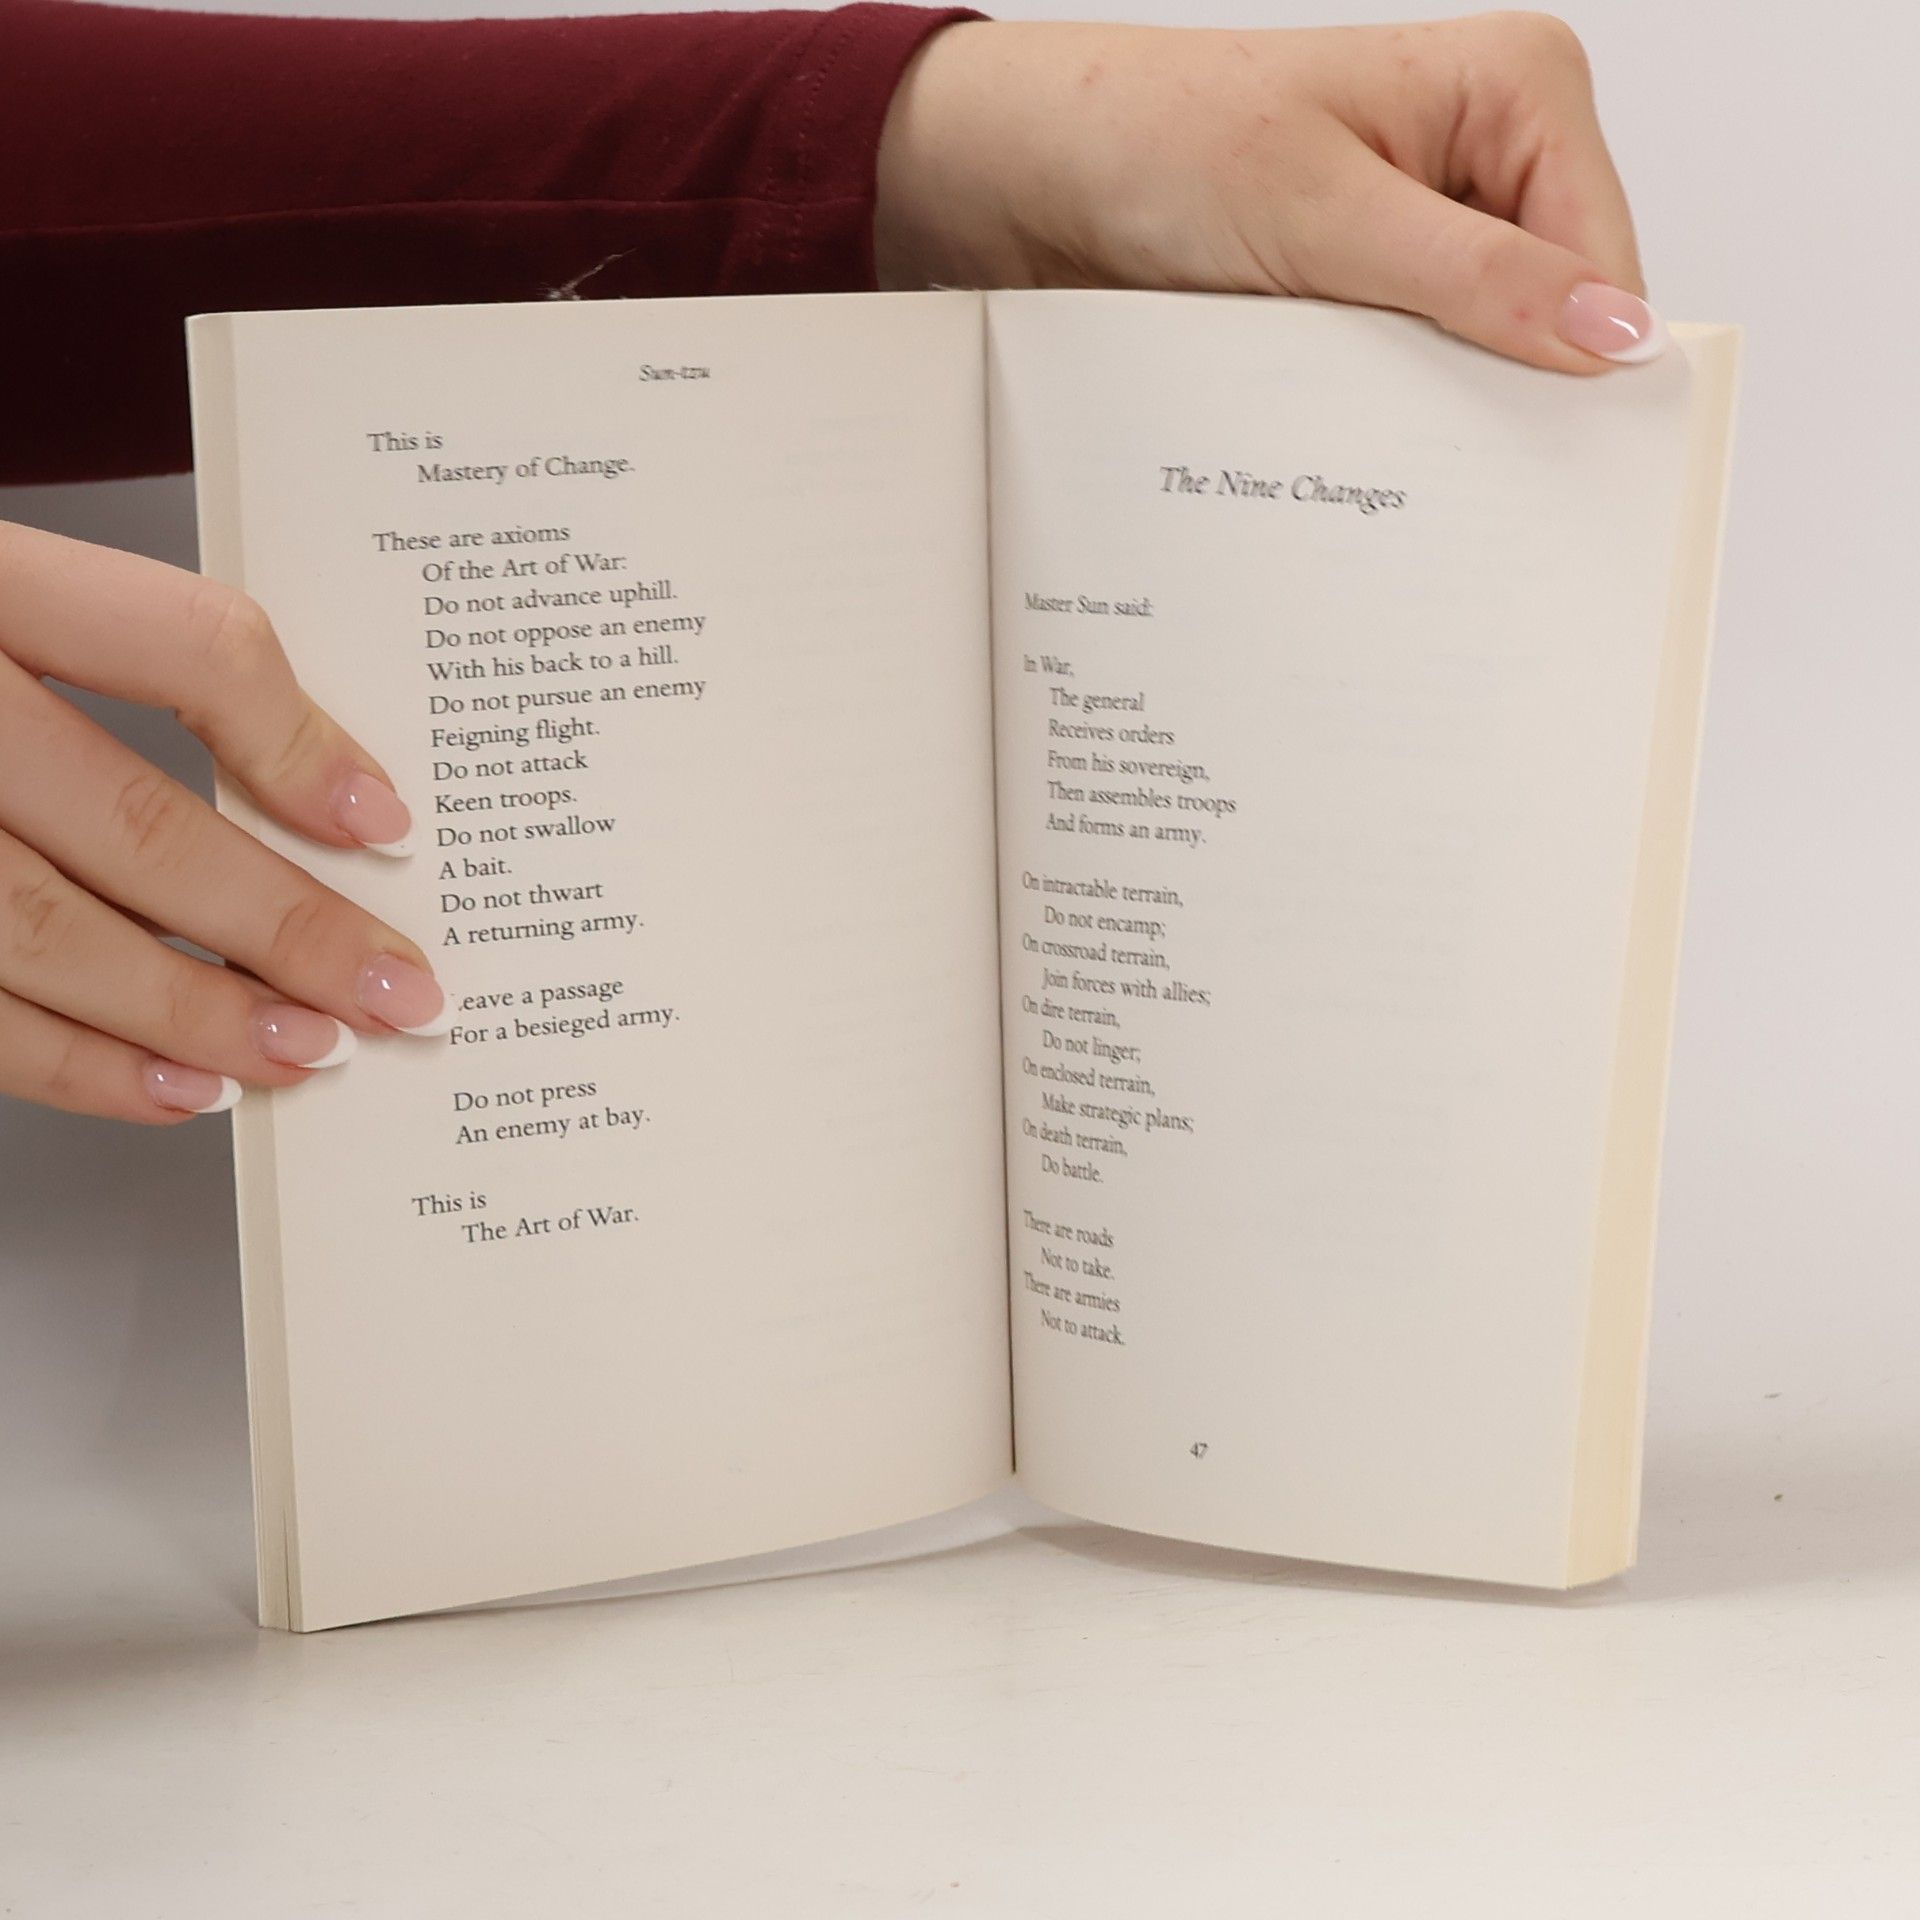 Sun-tzu
This is
Mastery of Change.
These are axioms
Of the Art of War:
Do not advance uphill.
Do not oppose an enemy
With his back to a hill.
Do not pursue an enemy
Feigning flight.
Do not attack
Keen troops.
Do not swallow
A bait.
Do not thwart
A returning army.
Leave a passage
For a besieged army.
Do not press
An enemy at bay.
This is
The Art of War.
The Nine Changes
Master Sun said:
In War,
The general
Receives orders
From his sovereign,
Then assembles troops
And forms an army.
On intractable terrain,
Do not encamp;
On crossroad terrain,
Join forces with allies;
On dire terrain,
Do not linger;
On enclosed terrain,
Make strategic plans;
On death terrain,
Do battle.
There are roads
Not to take.
There are armies
Not to attack.
47